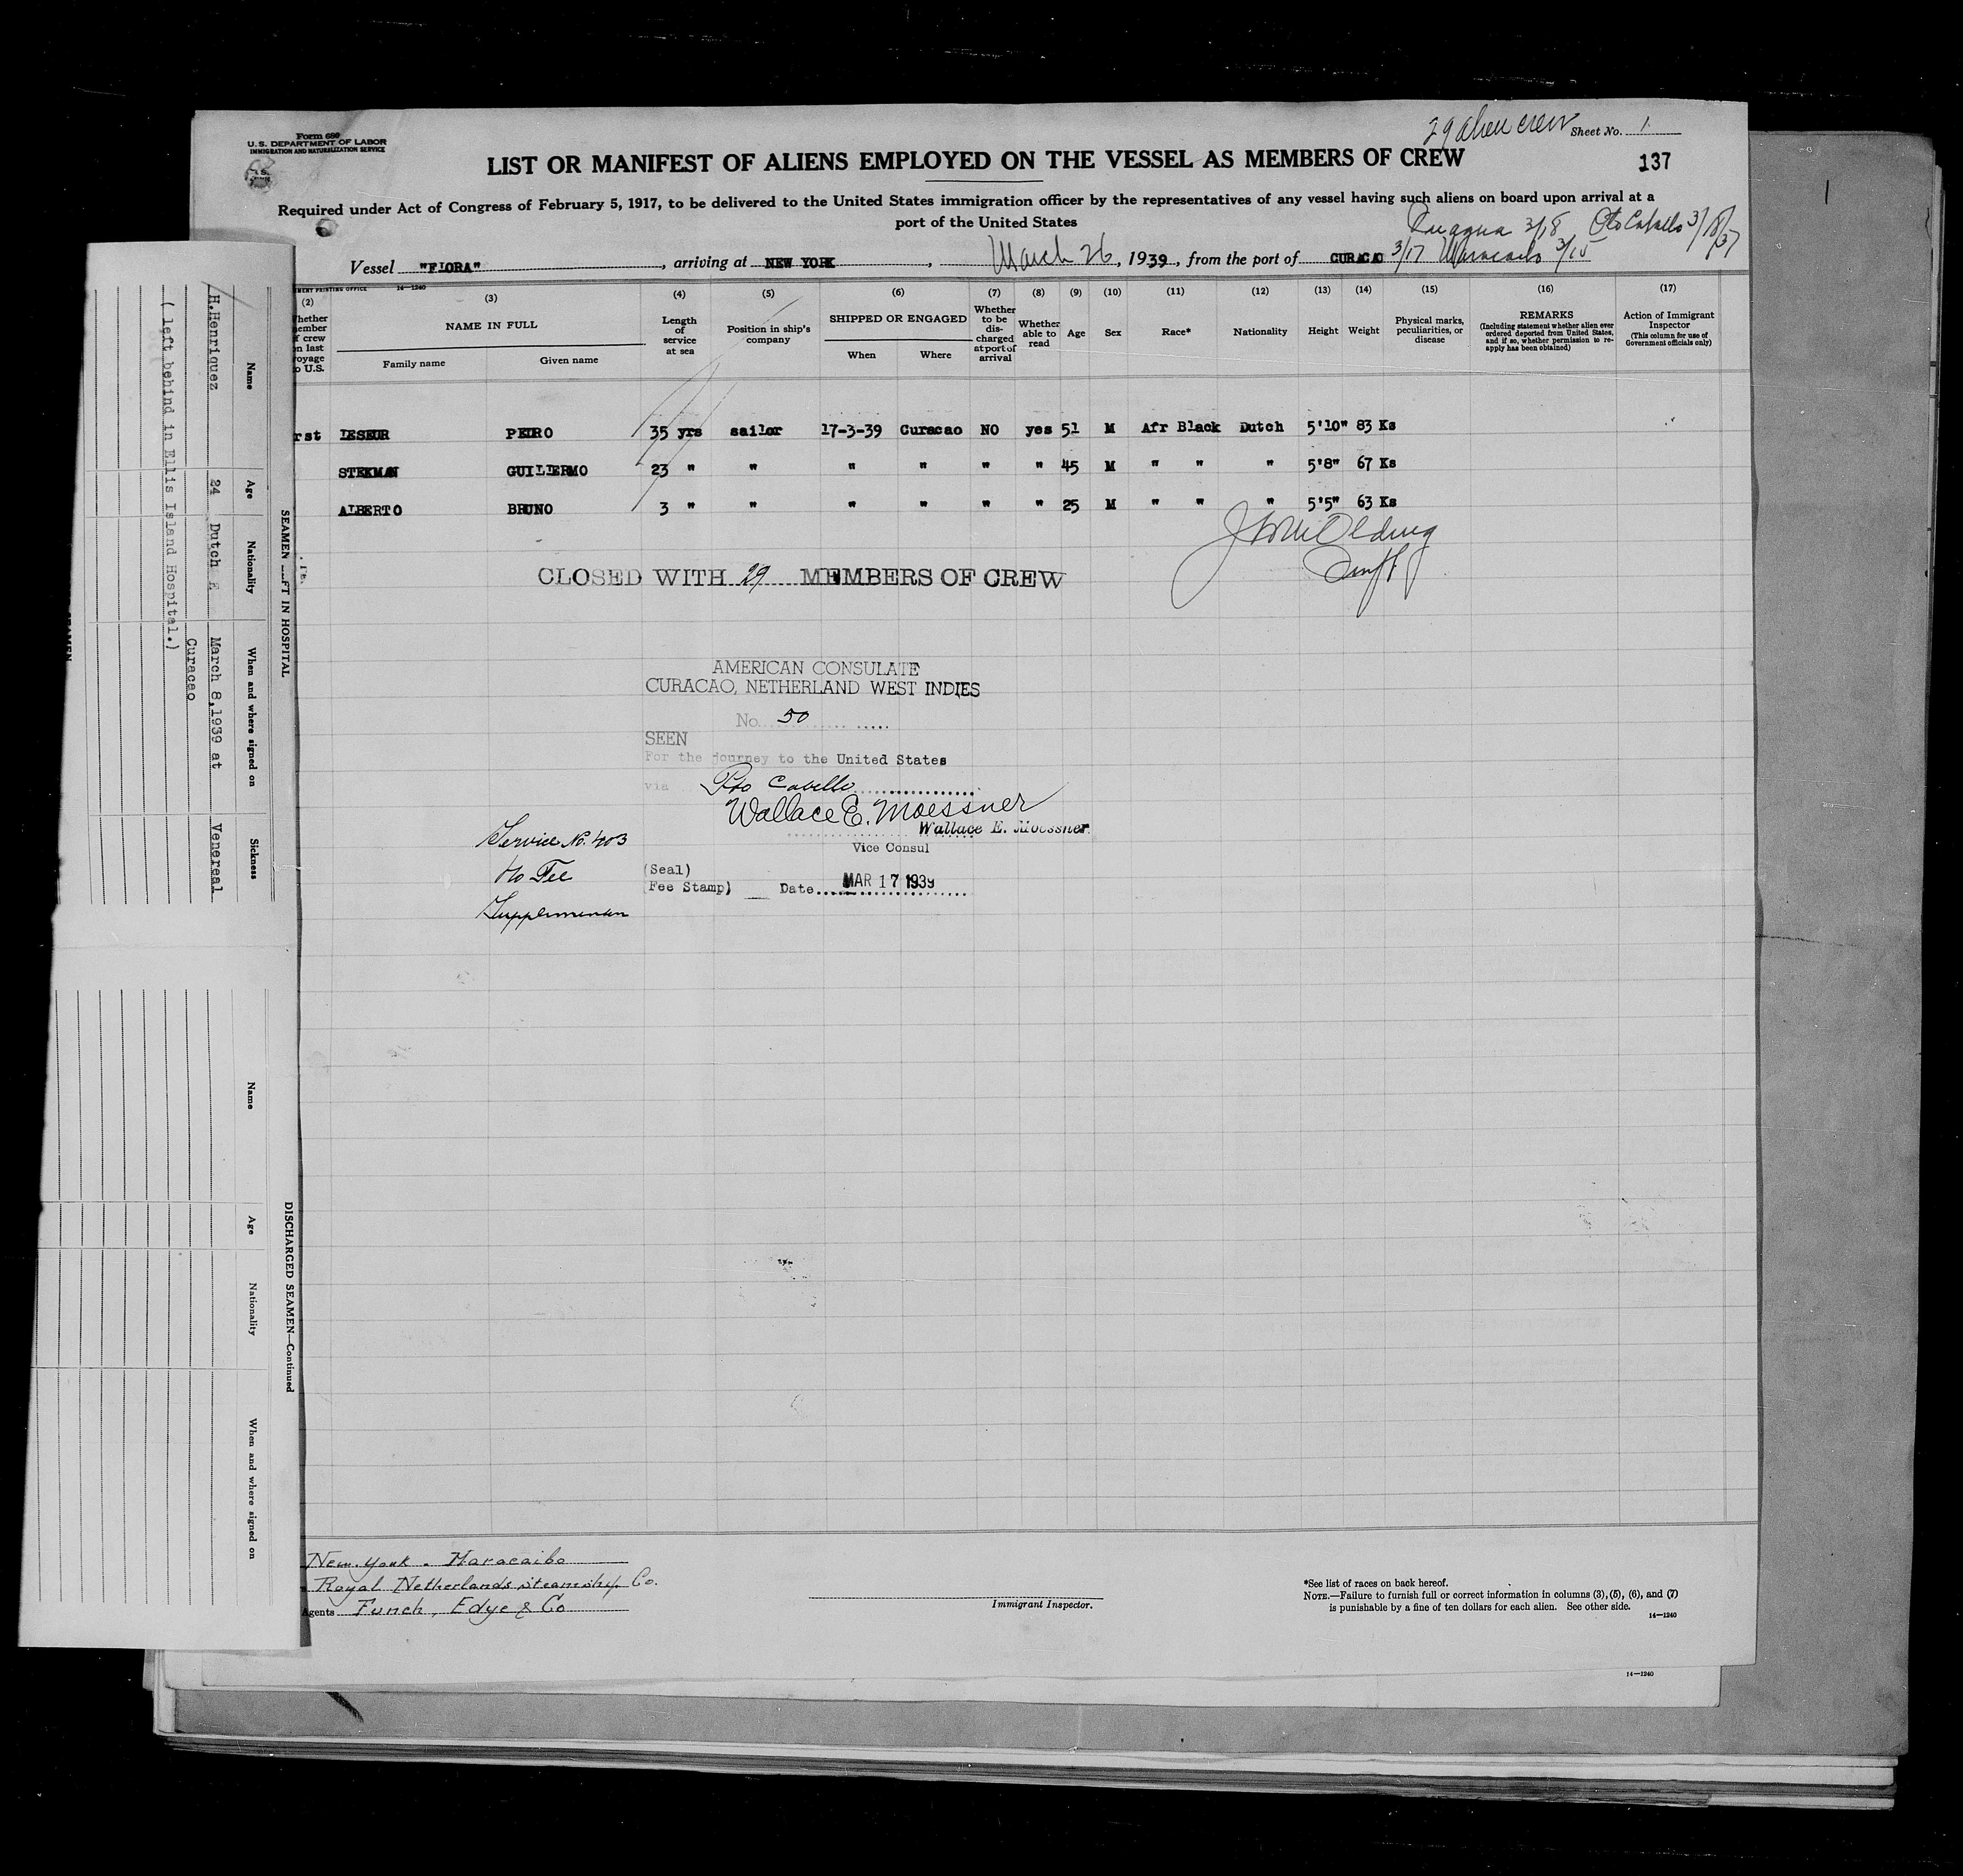 Form 680
U.S. DEPARTMENT OF LABOR
IMMIGRATION AND NATURALIZATION SERVICE
29 alien crew Sheet No. 1
LIST OR MANIFEST OF ALIENS EMPLOYED ON THE VESSEL AS MEMBERS OF CREW
137
Required under Act of Congress of February 5, 1917, to be delivered to the United States immigration officer by the representatives of any vessel having such aliens on board upon arrival at a
port of the United States
3/18 Pto Cabello 3/18/37
Vessel "FLORA", arriving at NEW YORK, March 26, 1939, from the port of CURACAO 3/17 Maracaibo 3/15
MENT PRINTING OFFICE 14—1240
(2) (3) (4) (5) (6) (7) (8) (9) (10) (11) (12) (13) (14) (15) (16) (17)
Whether member of crew on last voyage to U.S.
NAME IN FULL
Family name Given name
Length of service at sea
Position in ship's company
SHIPPED OR ENGAGED
When Where
Whether to be discharged at port of arrival
Whether able to read
Age Sex Race* Nationality Height Weight
Physical marks, peculiarities, or disease
REMARKS
(Including statement whether alien ever ordered deported from United States, and if so, whether permission to reapply has been obtained)
Action of Immigrant Inspector
(This column for use of Government officials only)
rst LESEUR PEDRO 35 yrs sailor 17-3-39 Curacao NO yes 51 M Afr Black Dutch 5'10" 83 Ks
STEKMAN GUILLERMO 23 " " " " " " 45 M " " " 5'8" 67 Ks
ALBERTO BRUNO 3 " " " " " " 25 M " " " 5'5" 63 Ks
CLOSED WITH 29 MEMBERS OF CREW
AMERICAN CONSULATE
CURACAO, NETHERLAND WEST INDIES
No. 50
SEEN
For the journey to the United States
via Pto Cabello
Wallace E. Moessner
Wallace E. Moessner
Vice Consul
Service No. 403
No Fee
(Seal)
(Fee Stamp) Date MAR 17 1939
New York - Maracaibo
Royal Netherlands Steamship Co.
Agents Funch, Edye & Co
Immigrant Inspector.
*See list of races on back hereof.
NOTE.—Failure to furnish full or correct information in columns (3), (5), (6), and (7)
is punishable by a fine of ten dollars for each alien. See other side.
14—1240
14—1240
SEAMEN LEFT IN HOSPITAL
Name Age Nationality When and where signed on Sickness
H.Henriquez 24 Dutch March 8,1939 at Venereal
Curacao
( left behind in Ellis Island Hospital.)
DISCHARGED SEAMEN—Continued
Name Age Nationality When and where signed on